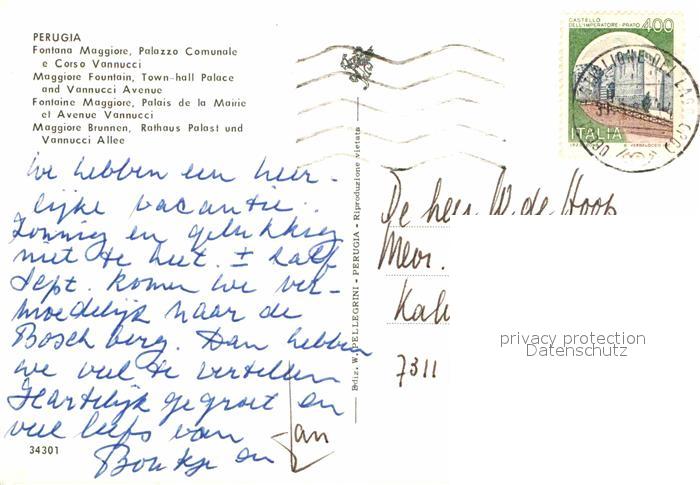 PERUGIA
Fontana Maggiore, Palazzo Comunale
e Corso Vannucci
Maggiore Fountain, Town-hall Palace
and Vannucci Avenue
Fontaine Maggiore, Palais de la Mairie
et Avenue Vannucci
Maggiore Brunnen, Rathaus Palast und
Vannucci Allee
We hebben een heer-
lijke vacantie.
Zonnig en gelukkig
niet te heet. ± half
Sept. komen we ver-
moedelijk naar de
Bosch berg. Dan hebben
we veel te vertellen
Hartelijk gegroet en
veel liefs van
Boukje en Jan
34301
Ediz. W. PELLEGRINI - PERUGIA - Riproduzione vietata
CASTELLO
DELL'IMPERATORE - PRATO 400
ITALIA
De heer W. de Hoop
Mevr.
Kal
7311
privacy protection
Datenschutz